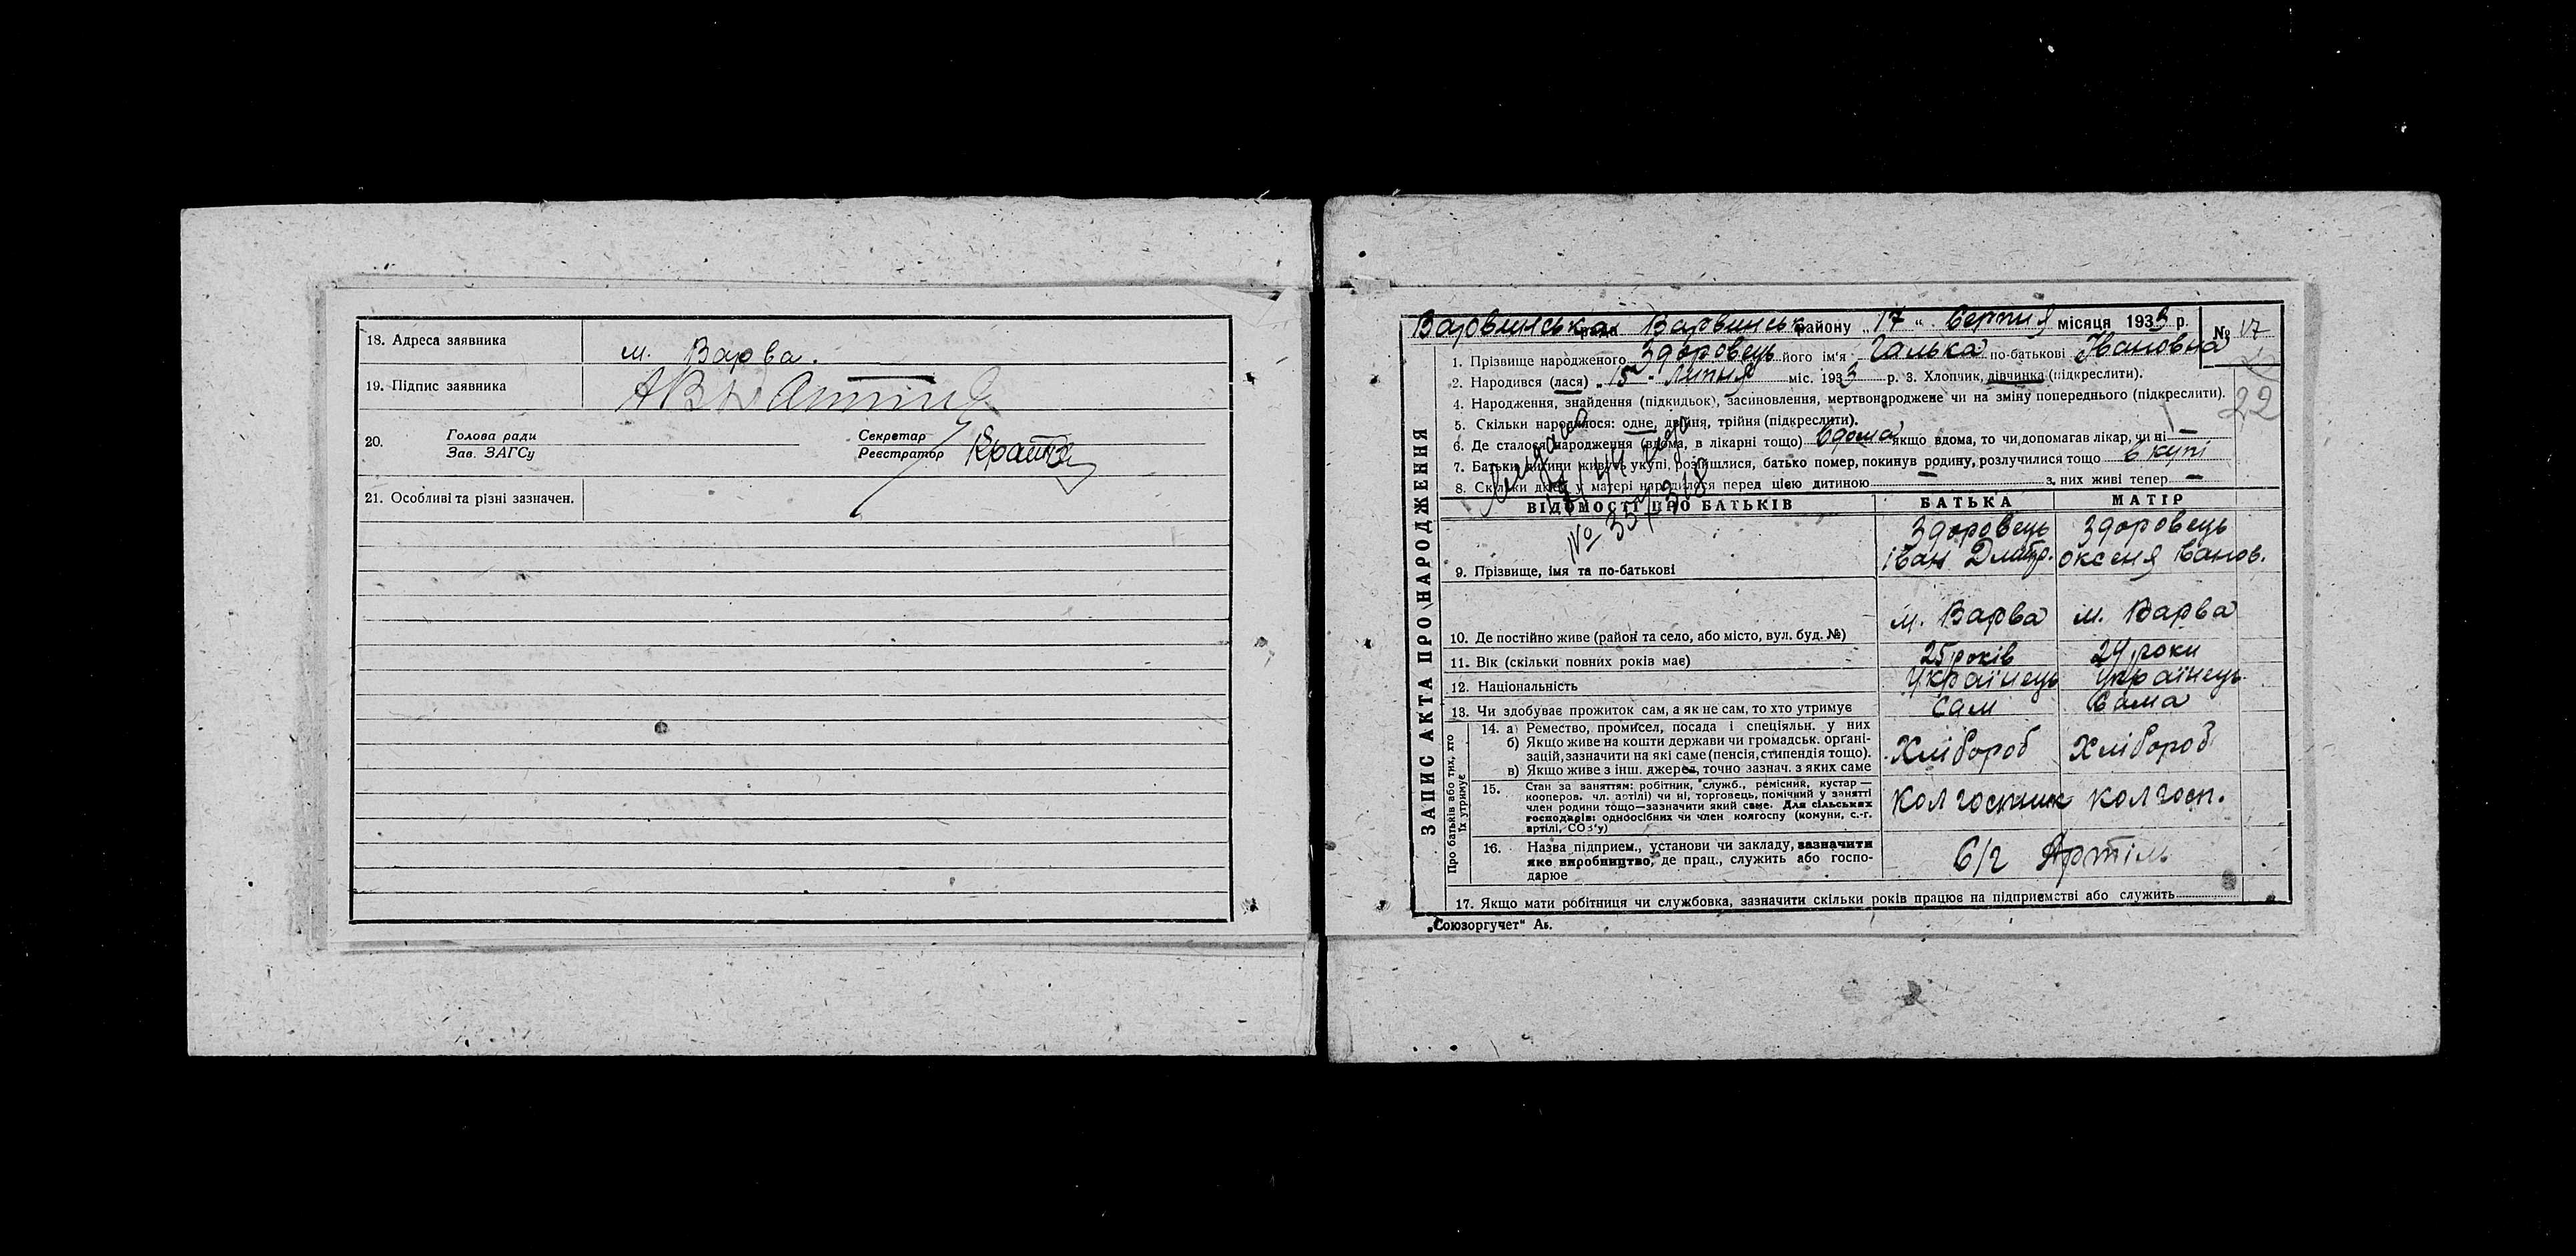 18. Адреса заявника м. Варва.
19. Підпис заявника
20. Голова ради Секретар
Зав. ЗАГСу Реєстратор
21. Особливі та різні зазначен.
Варвинська рада Варвинськ району „17“ Серпня місяця 1933 р. № 17
1. Прізвище народженого Здоровець його ім'я Галька по-батькові Івановна
2. Народився (лася) „15“ Липня міс. 1933 р. 3. Хлопчик, дівчинка (підкреслити).
4. Народження, знайдення (підкидьок), засиновлення, мертвонароджене чи на зміну попереднього (підкреслити).
22
5. Скільки народилося: одне, двійня, трійня (підкреслити).
6. Де сталося народження (вдома, в лікарні тощо) вдома якщо вдома, то чи допомагав лікар, чи ні —
7. Батьки дитини живуть укупі, розійшлися, батько помер, покинув родину, розлучилися тощо в купі
8. Скільки дітей у матері народилося перед цією дитиною — з них живі тепер —
№ 357318
ВІДОМОСТІ ПРО БАТЬКІВ БАТЬКА МАТІР
Здоровець Здоровець
9. Прізвище, імя та по-батькові Іван Дмитр. Оксеня Іванов.
10. Де постійно живе (район та село, або місто, вул. буд. №) м. Варва м. Варва
11. Вік (скільки повних років має) 25 років 24 роки
12. Національність Українець Українець
13. Чи здобуває прожиток сам, а як не сам, то хто утримує Сам Сама
14. а) Ремество, промисел, посада і спеціяльн. у них
б) Якщо живе на кошти держави чи громадськ. органі-
зацій, зазначити на які саме (пенсія, стипендія тощо). Хлібороб Хлібороб
в) Якщо живе з інш. джерел, точно зазнач. з яких саме
15. Стан за заняттям: робітник, служб., ремісник, кустар —
кооперов. чл. артілі) чи ні, торговець, помічний у занятті
член родини тощо—зазначити який саме. Для сільських Колгоспник колгосп.
господарів: одноосібних чи член колгоспу (комуни, с.-г.
артілі, СОЗ'у)
16. Назва підприєм., установи чи закладу, зазначити
яке виробництво, де прац., служить або госпо- С/г Артіль
дарює
17. Якщо мати робітниця чи службовка, зазначити скільки років працює на підприємстві або служить
Про батьків або тих, хто
їх утримує
ЗАПИС АКТА ПРО НАРОДЖЕННЯ
„Союзоргучет“ Ав.